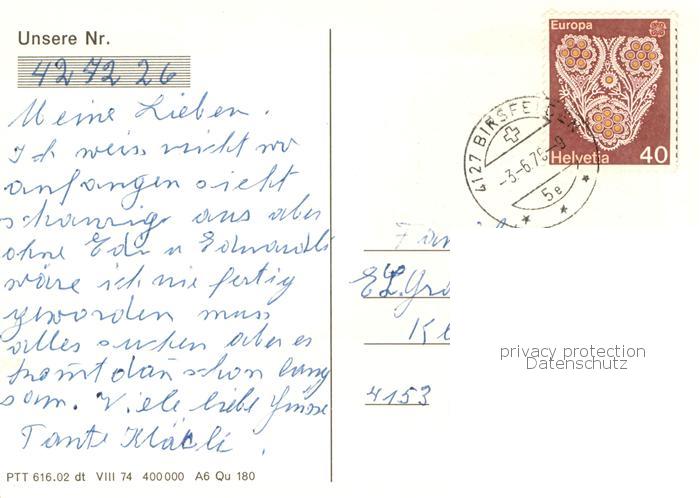 Unsere Nr.
42 72 26
Meine Lieben.
Ich weiss nicht wo
anfangen sieht
schaurig aus aber
ohne Edi u Eduardli
wäre ich nie fertig
geworden muss
alles suchen aber es
kommt dan schon lang
sam. Viele liebe Grüsse
Tante Kläeli.
PTT 616.02 dt VIII 74 400 000 A6 Qu 180
Europa
Helvetia 40
4127 BIRSFELDEN
-3.-6.76-9
5e
4153
privacy protection
Datenschutz